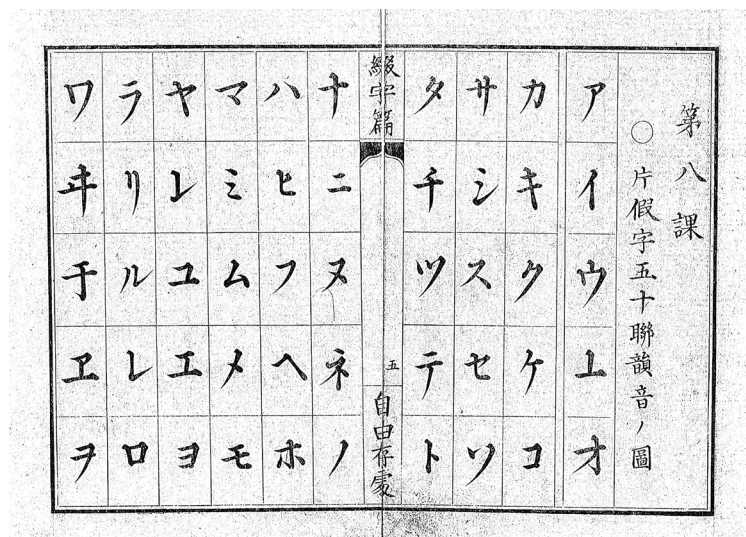 第八課
○片假字五十聯韻音ノ圖
アイウ𛄡オ
カキクケコ
サシスセソ
タチツテト
綴字篇
五
自由存處
ナニヌネノ
ハヒフヘホ
マミムメモ
ヤ𛄠ユエヨ
ラリルレロ
ワヰ𛄢ヱヲ